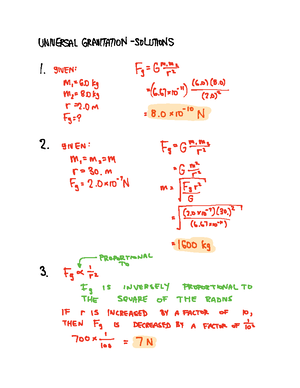 UNIVERSAL GRAVITATION - SOLUTIONS
1. GIVEN:
m₁ = 60 kg
m₂ = 80 kg
r = 2.0 m
Fg = ?
Fg = G m₁m₂/r²
= (6.67×10⁻¹¹) (6.0)(8.0)/(2.0)²
= 8.0 × 10⁻¹⁰ N
2. GIVEN:
m₁ = m₂ = m
r = 30. m
Fg = 2.0×10⁻⁷ N
Fg = G m₁m₂/r²
= G m²/r²
m = √(Fg r²/G)
= √((2.0×10⁻⁷)(30.)²/(6.67×10⁻¹¹))
= 1600 kg
3. Fg ∝ 1/r²
PROPORTIONAL
TO
Fg IS INVERSELY PROPORTIONAL TO
THE SQUARE OF THE RADIUS
IF r IS INCREASED BY A FACTOR OF 10,
THEN Fg IS DECREASED BY A FACTOR OF 1/10²
700 × 1/100 = 7 N